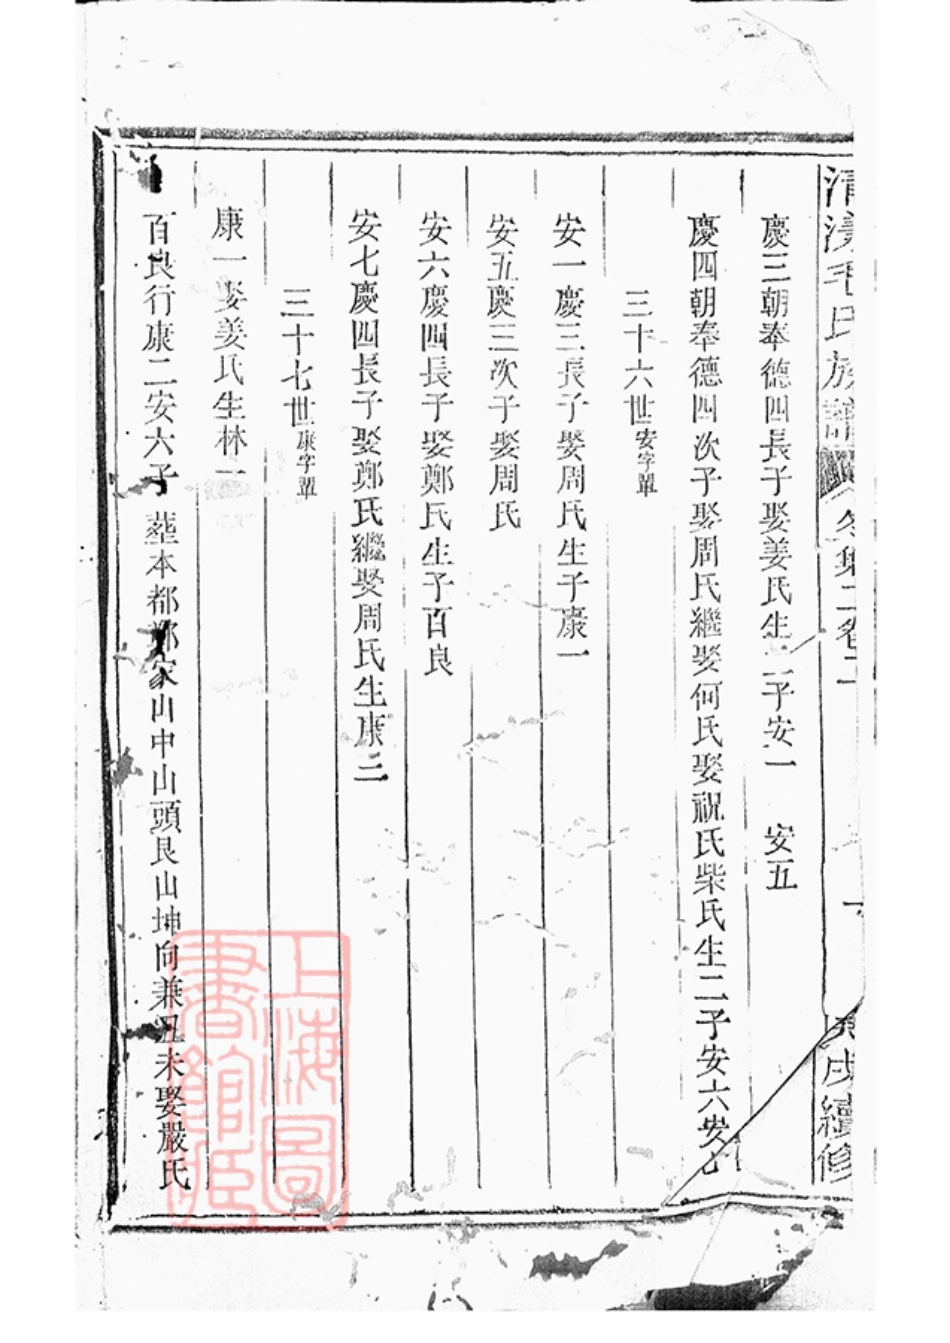 清漾毛氏族譜 冬集二卷二 戌續修
慶三朝奉德四長子娶姜氏生二子安一 安五
慶四朝奉德四次子娶周氏繼娶何氏娶祝氏柴氏生二子安六安七
三十六世安字單
安一慶三長子娶周氏生子康一
安五慶三次子娶周氏
安六慶四長子娶鄭氏生子百良
安七慶四長子娶鄭氏繼娶周氏生康三
三十七世康字單
康一娶姜氏生林一
百良行康二安六子 塟本都鄭家山中山頭艮山坤向兼丑未娶嚴氏
上海圖
書館藏